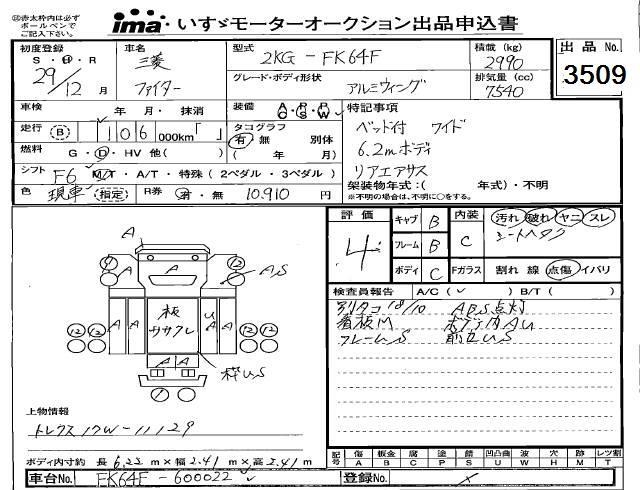 ㊟赤太枠内は必ずボールペンでご記入下さい。
ima いすゞモーターオークション出品申込書
初度登録 S・H・R 29/12月
車名 三菱 ファイター
型式 2KG-FK64F
積載 (kg) 2990
出品 No. 3509
グレード・ボディ形状 アルミウィング
排気量 (cc) 7540
車検 年 月・抹消
装備 A/C P/S P/W
特記事項
走行 (B) 106 000km「 」
タコグラフ 有・無 別体 ( 年 月)
ベッド付 ワイド
6.2mボディ
リアエアサス
燃料 G・D・HV 他( )
シフト F6 M/T・A/T・特殊(2ペダル・3ペダル)
架装物年式:( 年式)・不明
※不明の場合は、不明に○をする。
色 現車 (指定) R券 有・無 10,910 円
評価 4
キャブ B
フレーム B
ボディ C
内装 C
汚れ 破れ ヤニ スレ
Fガラス 割れ 線 点傷 イバリ
検査員報告 A/C( ✓ ) B/T( )
別タコ 18/10 ABS点灯
看板M ボデー内AU
フレームS 前立US
A
A
A,S
12
12
A
A
板ササクレ
U
A
A
12
12
12
12
A
A
枠U,S
上物情報
トレクス 17W-11129
ボディ内寸約 長 6.22m×幅 2.41m×高 2.41m
記号 傷 A 板金 B 腐 C 塗 P 錆 S 凹凸曲 U 波 W 穴 H 跡 M レツ割 T
車台No. FK64F-600022
登録No.